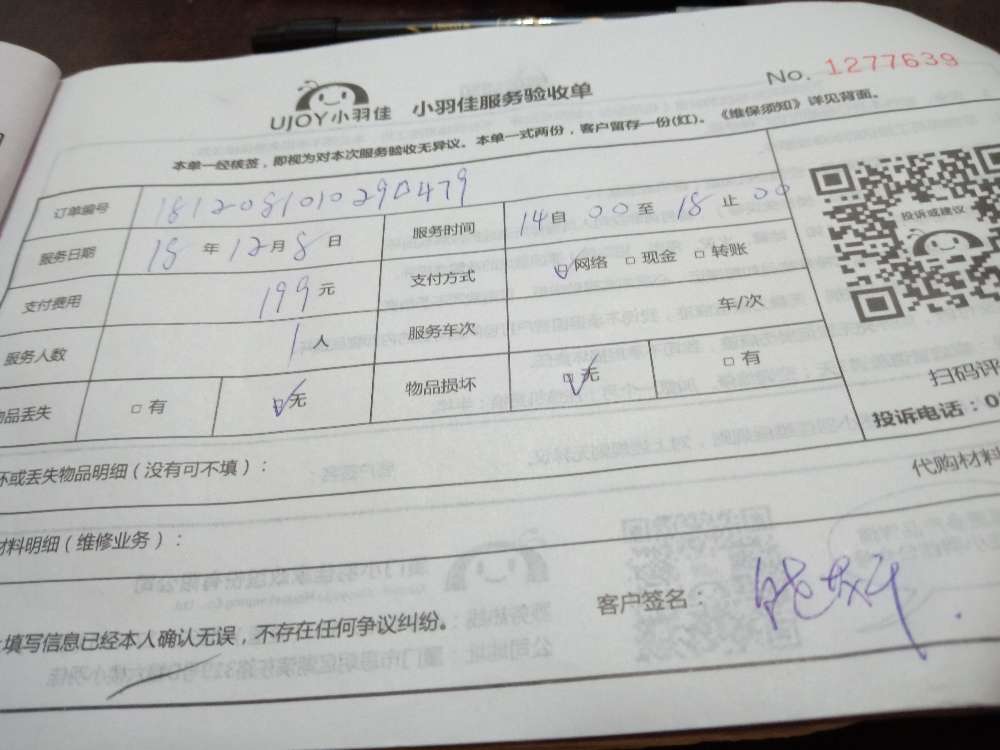 UJOY小羽佳 小羽佳服务验收单 No. 1277639
本单一经核签，即视为对本次服务验收无异议。本单一式两份，客户留存一份(红)。《维保须知》详见背面。
订单编号 181208101029 479
服务日期 18 年 12 月 8 日 服务时间 14 自 00 至 18 止 00
投诉或建议
支付费用 199 元 支付方式 ☑网络 □现金 □转账
服务人数 1 人 服务车次 车/次
品丢失 □有 ☑无 物品损坏 ☑无 □有
扫码评
投诉电话：0
坏或丢失物品明细（没有可不填）：
代购材料
材料明细（维修业务）：
填写信息已经本人确认无误，不存在任何争议纠纷。 客户签名：